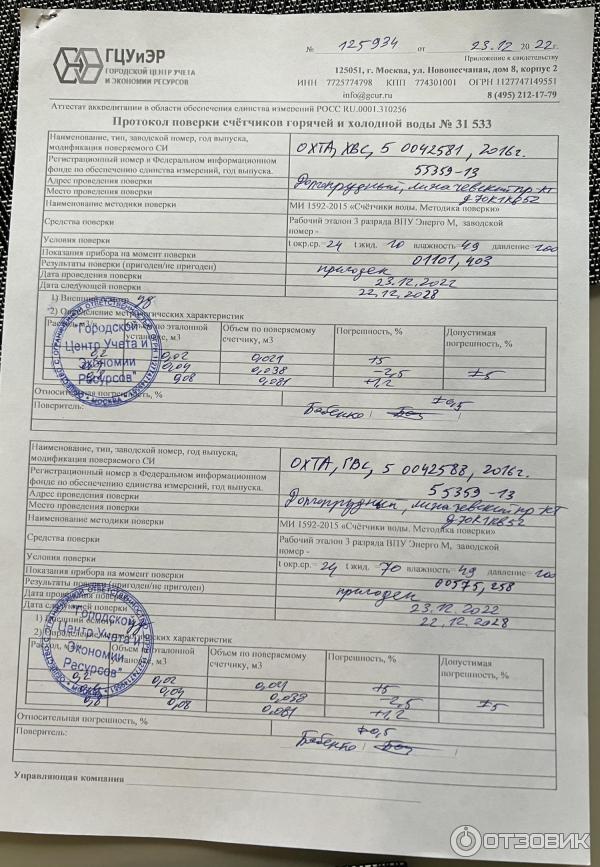 ГЦУиЭР
ГОРОДСКОЙ ЦЕНТР УЧЕТА
И ЭКОНОМИИ РЕСУРСОВ
№ 125934 от 23.12 2022г.
Приложение к свидетельству
125051, г. Москва, ул. Новопесчаная, дом 8, корпус 2
ИНН 7725774798 КПП 774301001 ОГРН 1127747149551
info@gcur.ru 8 (495) 212-17-79
Аттестат аккредитации в области обеспечения единства измерений РОСС RU.0001.310256
Протокол поверки счётчиков горячей и холодной воды № 31 533
Наименование, тип, заводской номер, год выпуска, модификация поверяемого СИ ОХТА, ХВС, 5 0042581, 2016г.
Регистрационный номер в Федеральном информационном фонде по обеспечению единства измерений, год выпуска. 55359-13
Адрес проведения поверки Долгопрудный, Лихачевский пр-кт
Место проведения поверки д70к1кв52
Наименование методики поверки МИ 1592-2015 «Счётчики воды. Методика поверки»
Средства поверки Рабочий эталон 3 разряда ВПУ Энерго М, заводской номер -
Условия поверки t окр.ср. 24 t жид. 10 влажность 49 давление 100
Показания прибора на момент поверки 01101,403
Результаты поверки (пригоден/не пригоден) пригоден
Дата проведения поверки 23.12.2022
Дата следующей поверки 22.12.2028
1) Внешний осмотр
2) Определение метрологических характеристик
Расход, м3/ Объем по эталонной установке, м3 Объем по поверяемому счетчику, м3 Погрешность, % Допустимая погрешность, %
0,2 0,02 0,021 +5
0,04 0,038 -2,5 ±5
0,08 0,081 +1,2
Относительная погрешность, % ±0,5
Поверитель: Бабенко
"Городской Центр Учета и Экономии Ресурсов"
МОСКВА
Наименование, тип, заводской номер, год выпуска, модификация поверяемого СИ ОХТА, ГВС, 5 0042588, 2016г.
Регистрационный номер в Федеральном информационном фонде по обеспечению единства измерений, год выпуска. 55359-13
Адрес проведения поверки Долгопрудный, Лихачевский пр-кт
Место проведения поверки д70к1кв52
Наименование методики поверки МИ 1592-2015 «Счётчики воды. Методика поверки»
Средства поверки Рабочий эталон 3 разряда ВПУ Энерго М, заводской номер -
Условия поверки t окр.ср. 24 t жид. 70 влажность 49 давление 100
Показания прибора на момент поверки 00575,258
Результаты поверки (пригоден/не пригоден) пригоден
Дата проведения поверки 23.12.2022
Дата следующей поверки 22.12.2028
1) Внешний осмотр
2) Определение метрологических характеристик
Расход, м3/ Объем по эталонной установке, м3 Объем по поверяемому счетчику, м3 Погрешность, % Допустимая погрешность, %
0,2 0,02 0,021 +5
0,04 0,038 -2,5 ±5
0,8 0,08 0,081 +1,2
Относительная погрешность, % ±0,5
Поверитель: Бабенко
"Городской Центр Учета и Экономии Ресурсов"
Управляющая компания
ОТЗОВИК